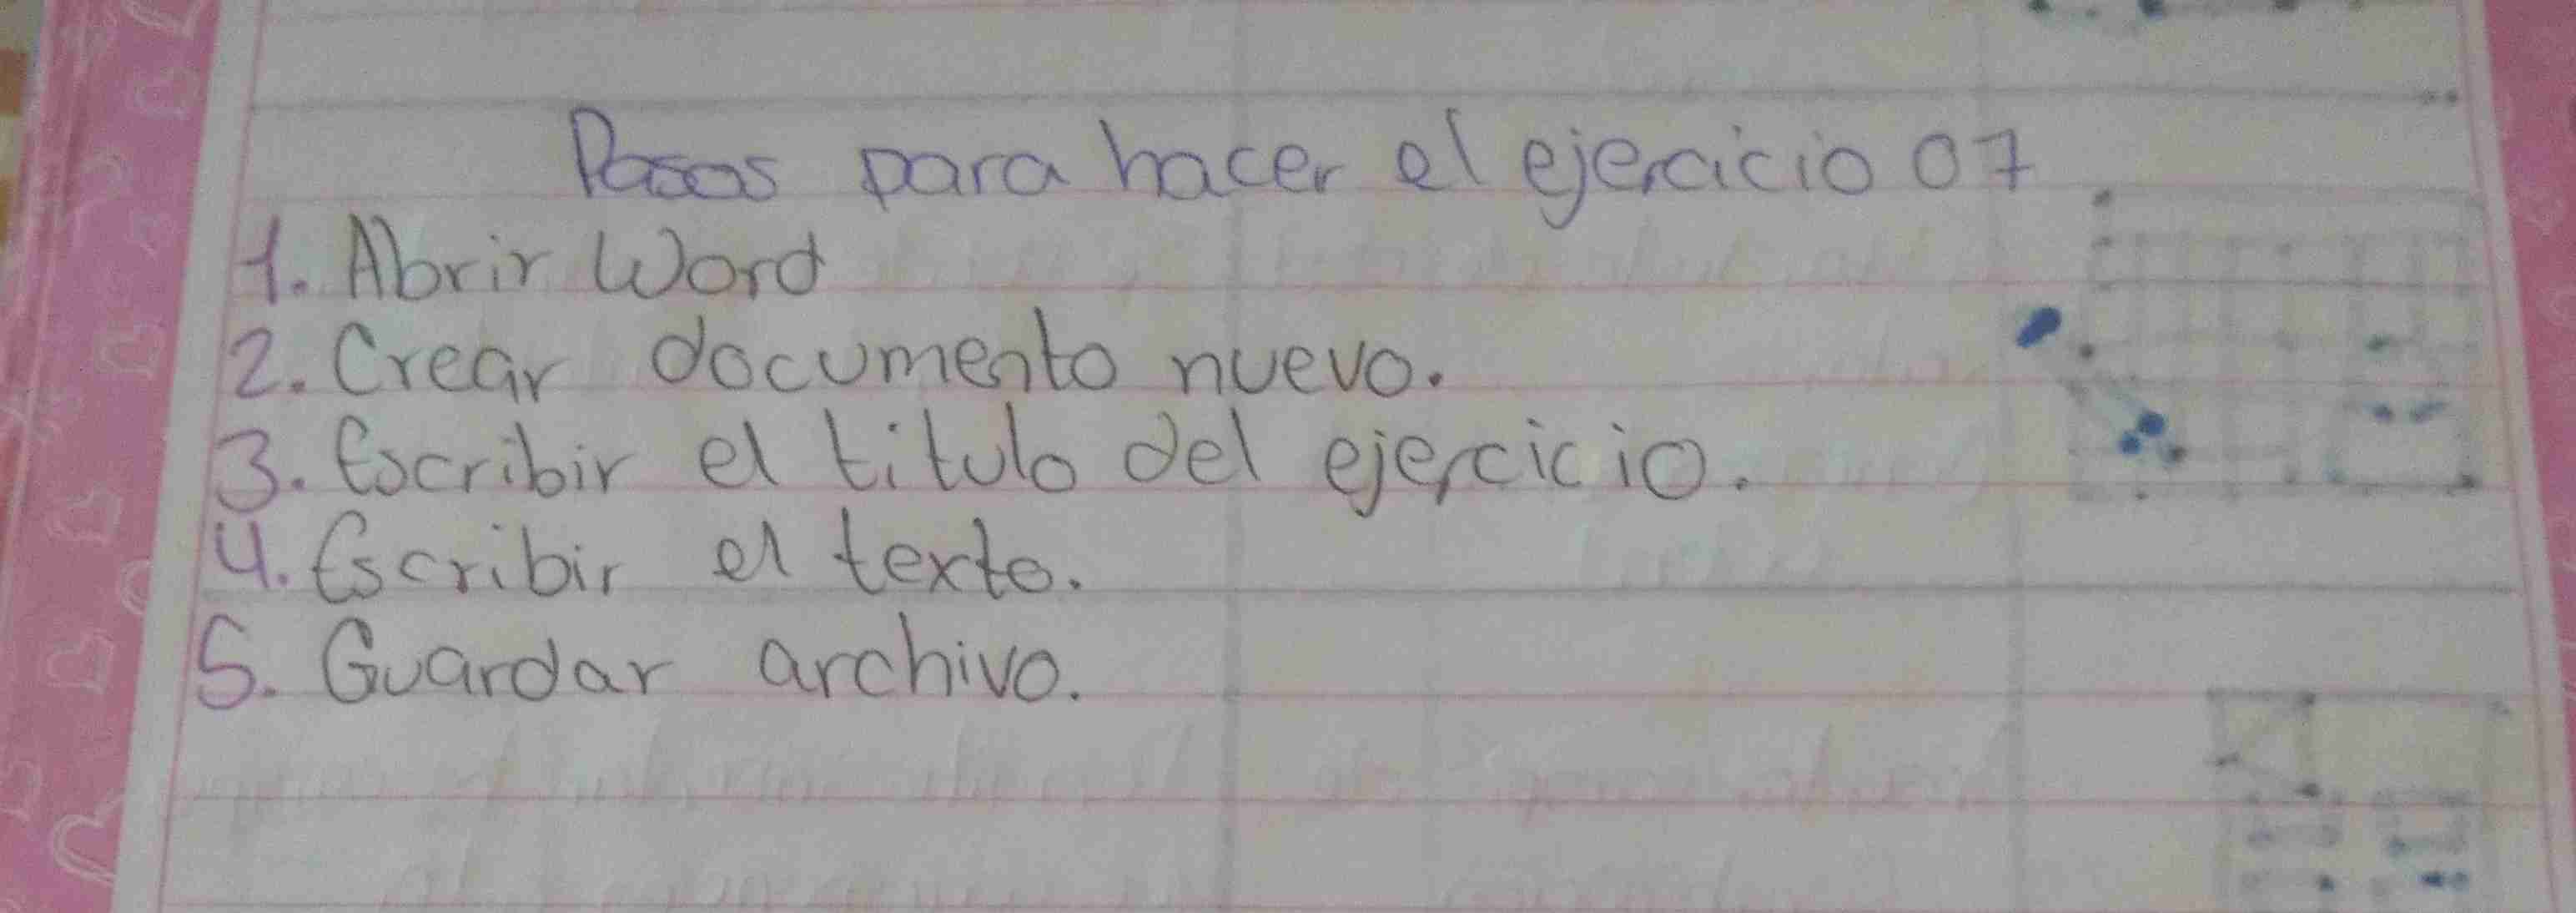 Pasos para hacer el ejercicio 07
1. Abrir Word
2. Crear documento nuevo.
3. Escribir el titulo del ejercicio.
4. Escribir el texto.
5. Guardar archivo.